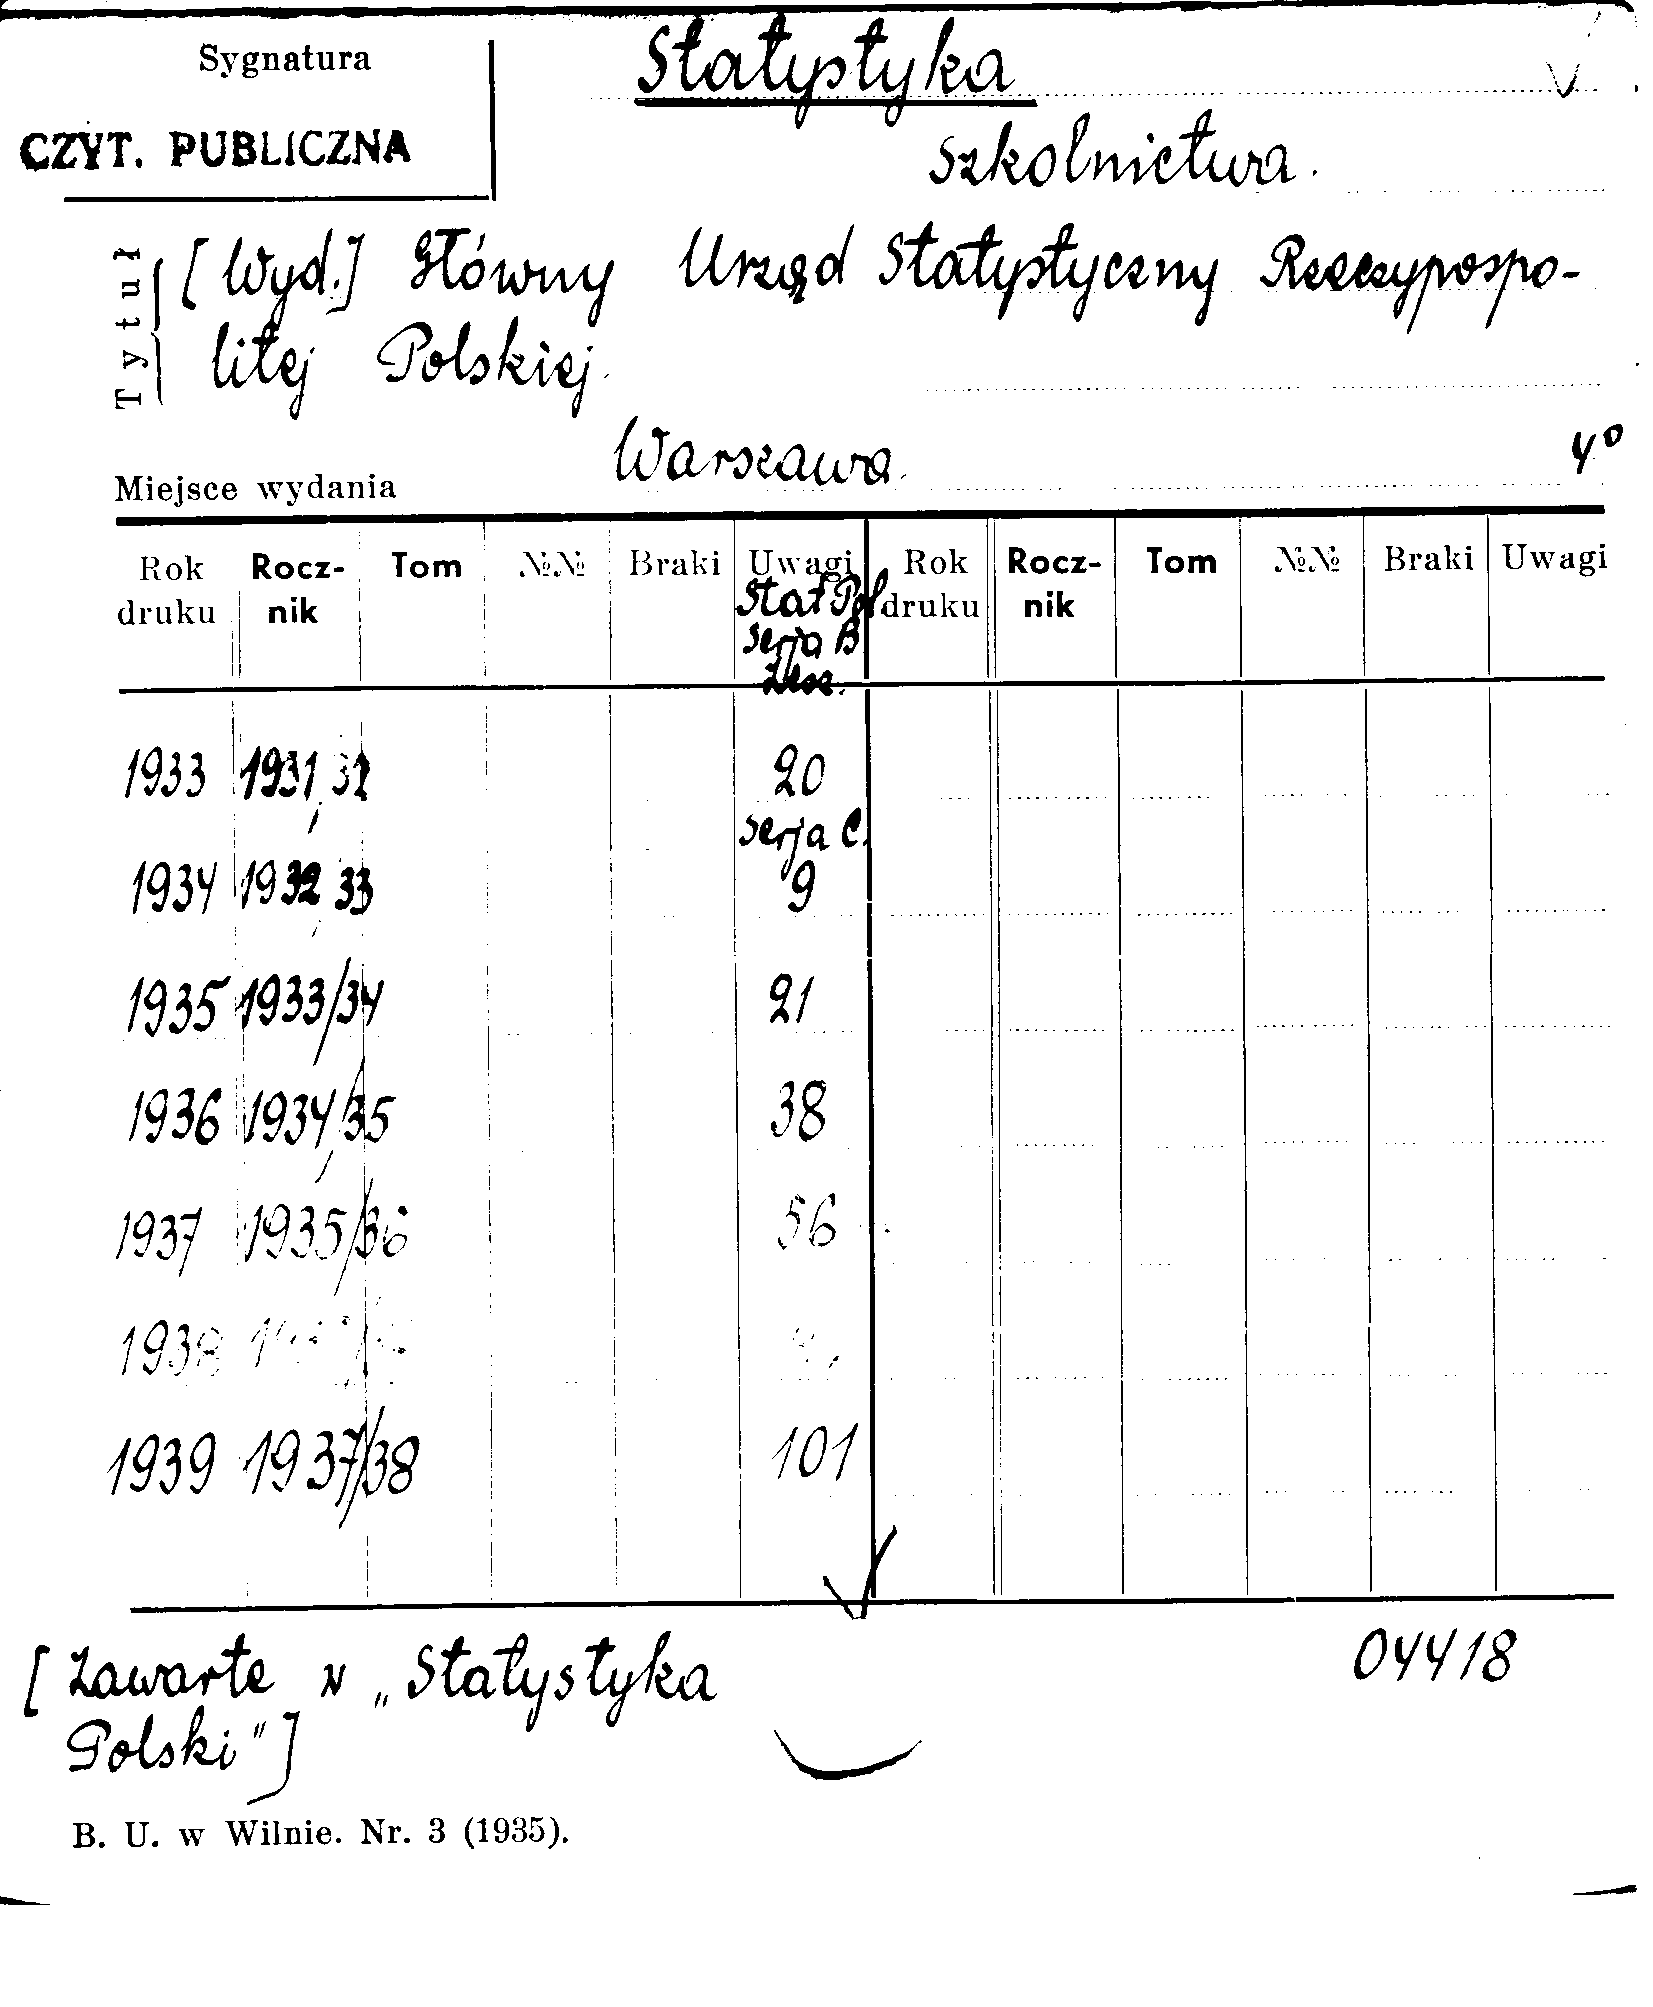 Sygnatura
CZYT. PUBLICZNA
Statystyka
szkolnictwa.
Tytuł
[Wyd.] Główny Urząd Statystyczny Rzeczypospo-
litej Polskiej.
Miejsce wydania Warszawa. 4°
Rok druku Rocz-nik Tom №№ Braki Uwagi Rok druku Rocz-nik Tom №№ Braki Uwagi
Stat Pol
serja B
Zesz.
1933 1931/32 20
serja C.
1934 1932/33 9
1935 1933/34 21
1936 1934/35 38
1937 1935/36 56
1938
1939 1937/38 101
[Zawarte w „Statystyka
Polski"]
04418
B. U. w Wilnie. Nr. 3 (1935).